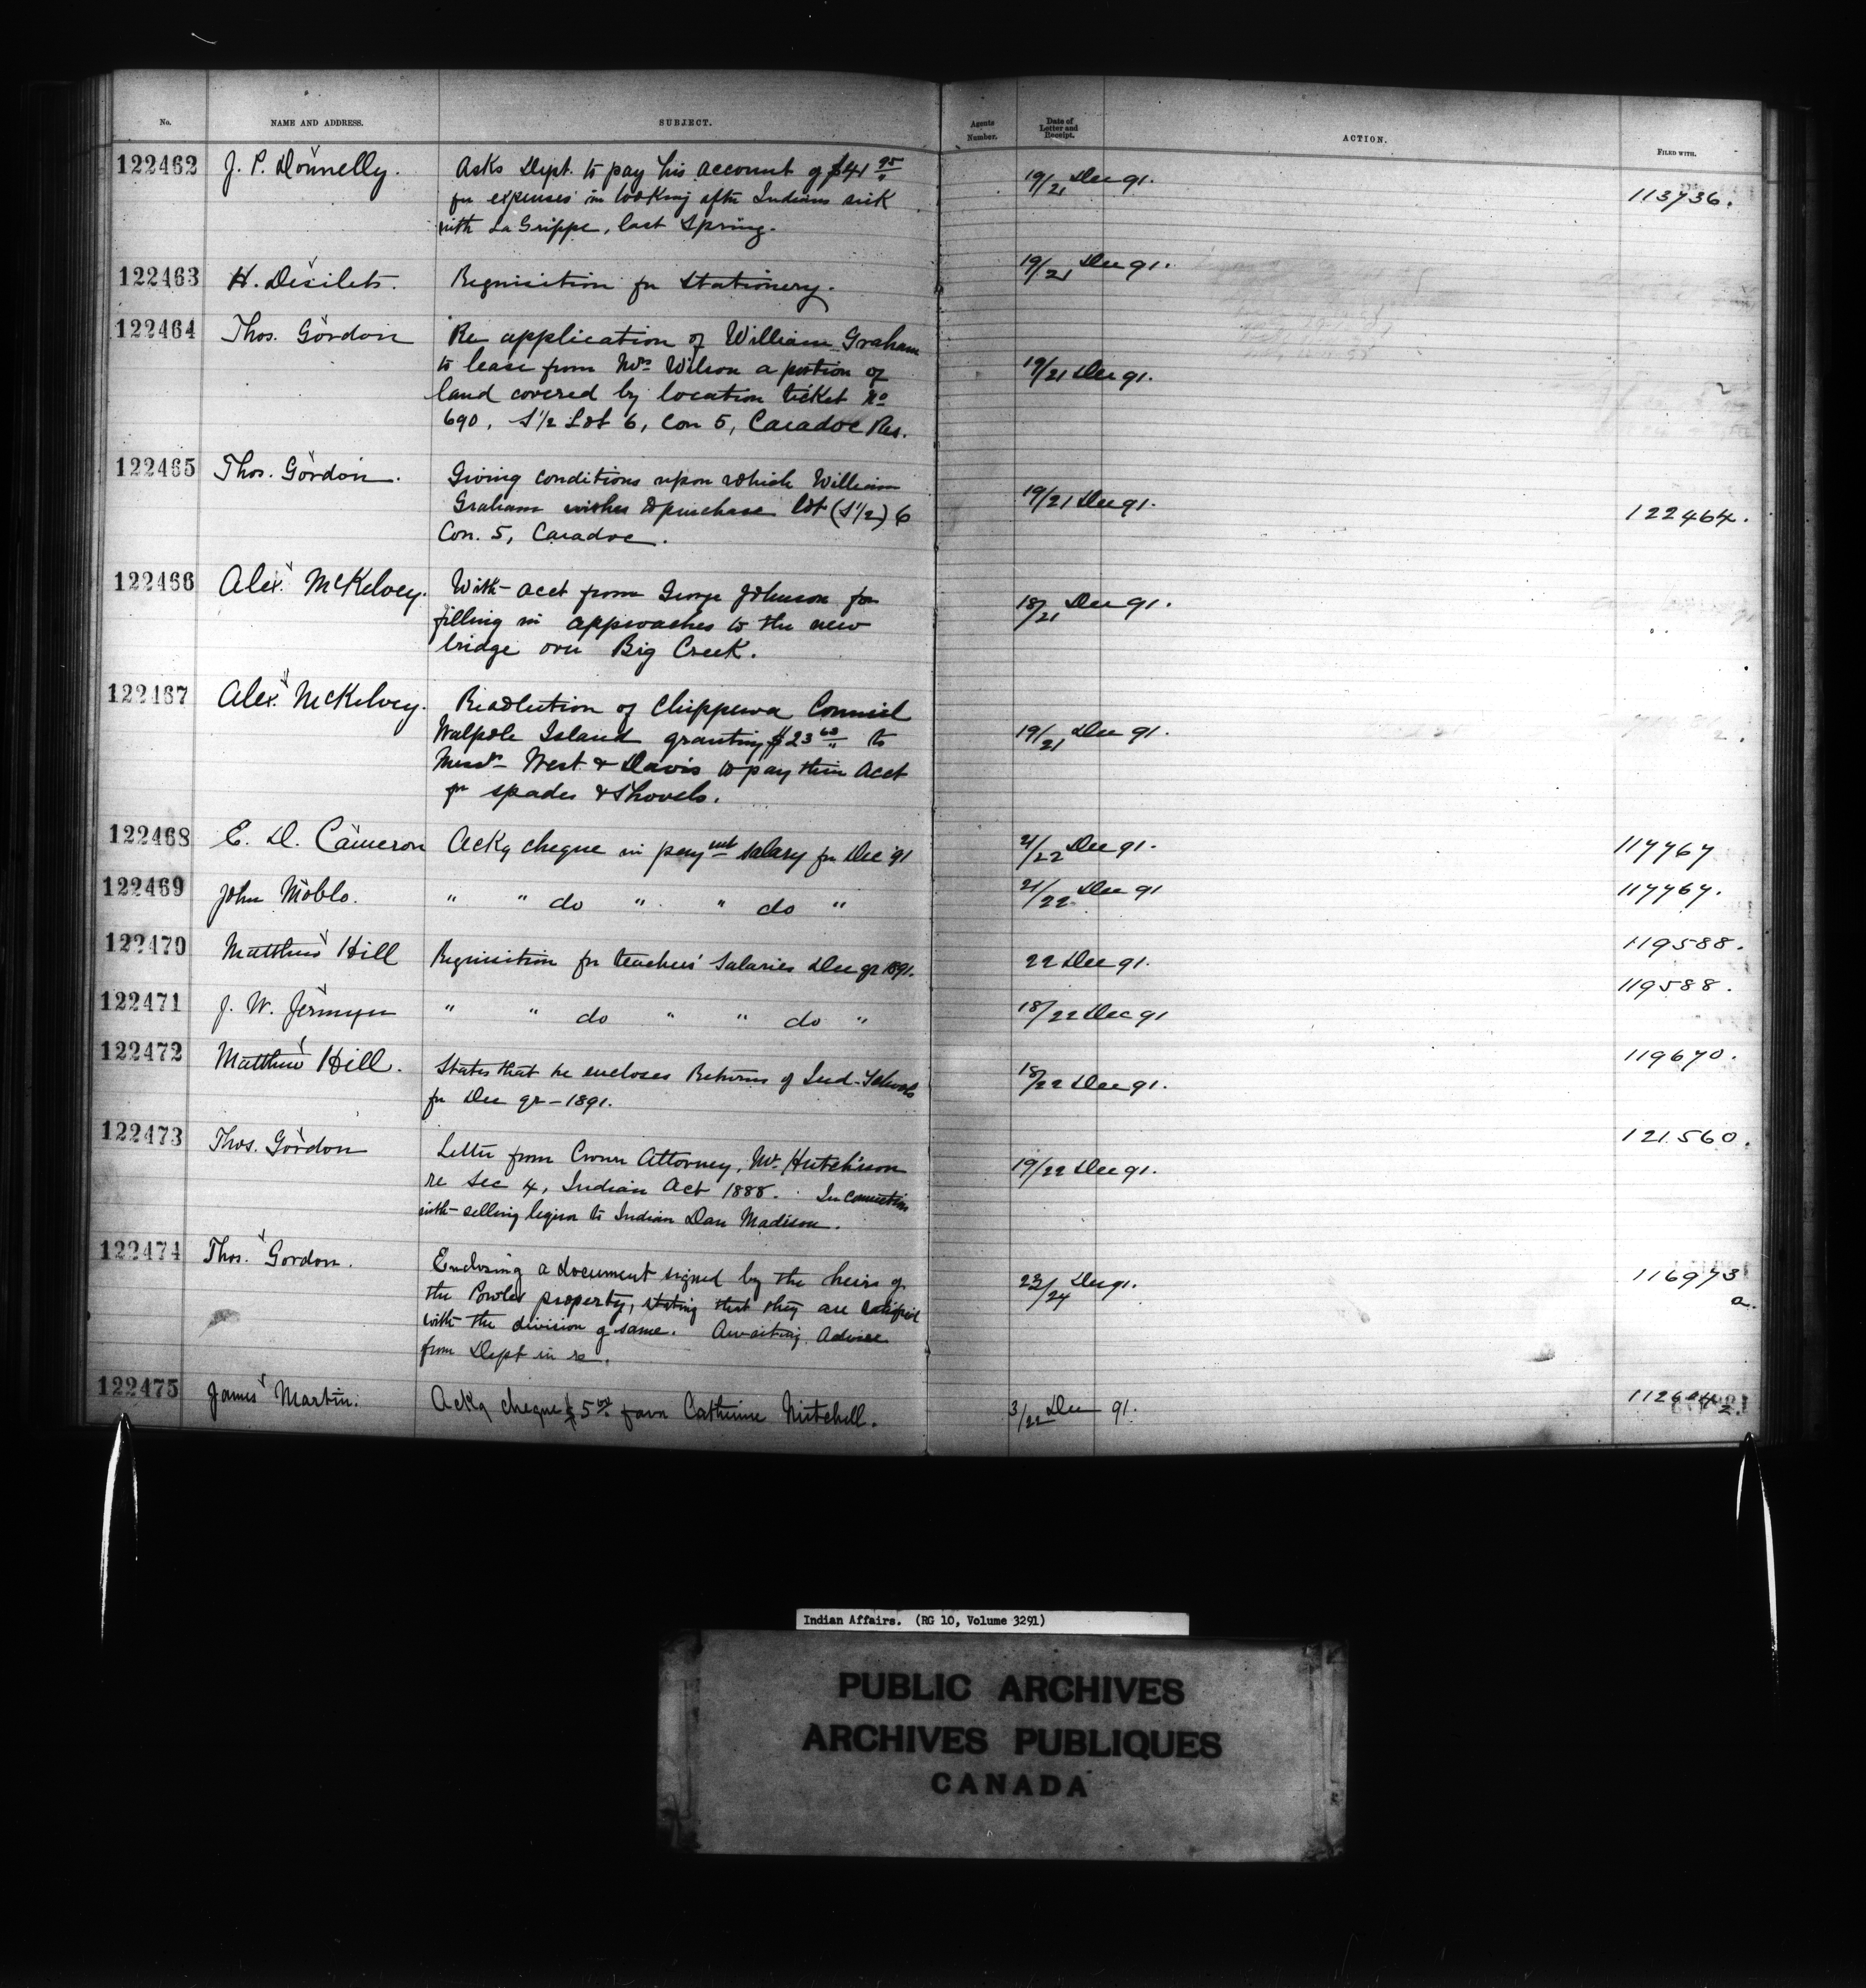 No. NAME AND ADDRESS. SUBJECT. Agents Number. Date of Letter and Receipt. ACTION. FILED WITH.
122462 J. P. Donnelly. Asks Dept. to pay his account of $41 95 19/21 Dec 91. 113736.
for expenses in looking after Indians sick
with La Grippe, last Spring.
122463 H. Desilets. Requisition for Stationery. 19/21 Dec 91.
122464 Thos. Gordon Re application of William Graham
to lease from Mrs Wilson a portion of 19/21 Dec 91.
land covered by location ticket No
690, S 1/2 Lot 6, Con 5, Caradoc Res.
122465 Thos. Gordon. Giving conditions upon which William
Graham wishes to purchase Lot (S 1/2) 6 19/21 Dec 91. 122464.
Con. 5, Caradoc.
122466 Alex. McKelvey. With acct from George Johnson for 18/21 Dec 91.
filling in approaches to the new
bridge over Big Creek.
122467 Alex. McKelvey. Resolution of Chippewa Council
Walpole Island granting $23 63 to 19/21 Dec 91.
Messrs West & Davis to pay their acct
for spades & Shovels.
122468 E. D. Cameron Ackg cheque in payment salary for Dec 91 21/22 Dec 91. 117767
122469 John Moblo. " " do " " do " 21/22 Dec 91 117767.
122470 Matthew Hill Requisition for teachers' Salaries Dec qr 1891. 22 Dec 91. 119588.
122471 J. W. Jermyn " " do " " do " 18/22 Dec 91 119588.
122472 Matthew Hill. States that he encloses Returns of Ind. Schools 18/22 Dec 91. 119670.
for Dec qr - 1891.
122473 Thos. Gordon Letter from Crown Attorney, Mr. Hutchison 19/22 Dec 91. 121560.
re Sec 4, Indian Act 1888. In connection
with selling liquor to Indian Dan Madison.
122474 Thos. Gordon. Enclosing a document signed by the heirs of 23/24 Dec 91. 116973
the property, stating that they are satisfied a.
with the division of same. Awaiting Advice
from Dept in re.
122475 James Martin. Ackg cheque $5 00 favor Catherine Mitchell. 3/22 Dec 91.
Indian Affairs. (RG 10, Volume 3291)
PUBLIC ARCHIVES
ARCHIVES PUBLIQUES
CANADA